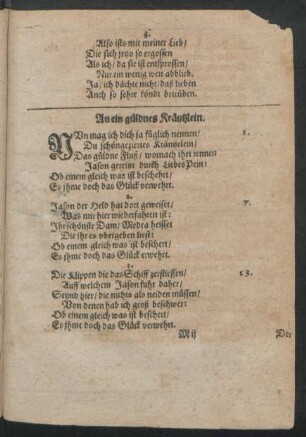 3.
Also ists mit meiner Lieb/
Die sich jetzo so ergossen
Als ich/ da sie ist entsprossen/
Nur ein wenig weit abblieb.
Ja/ ich dächte nicht/ daß lieben
Auch so sehre köndt betrüben.
An ein güldnes Kräntzlein.
NUn mag ich dich ja füglich nennen/
1.
Du schöngeziertes Kräntzelein/
Das güldne Fluß/ wornach thet rennen
Jason gereitzt durch Liebes Pein:
Ob einem gleich was ist beschehrt/
Es ihme doch das Glück verwehrt.
2.
Jason der Held hat dort geweiset/
7.
Was mir hier wiederfahren ist:
Ihr schönste Dam/ Medea heisset
Die ihr es ubergeben ließt:
Ob einem gleich was ist beschert/
Es ihme doch das Glück erwehrt.
Die Klippen die das Schiff zerstiessen/
13.
Auff welchem Jason fuhr daher/
Seynd hier/ die nichts als neiden müssen/
Von denen hab ich groß beschwer:
Ob einem gleich was ist beschert/
Es ihme doch das Glück verwehrt.
M ij